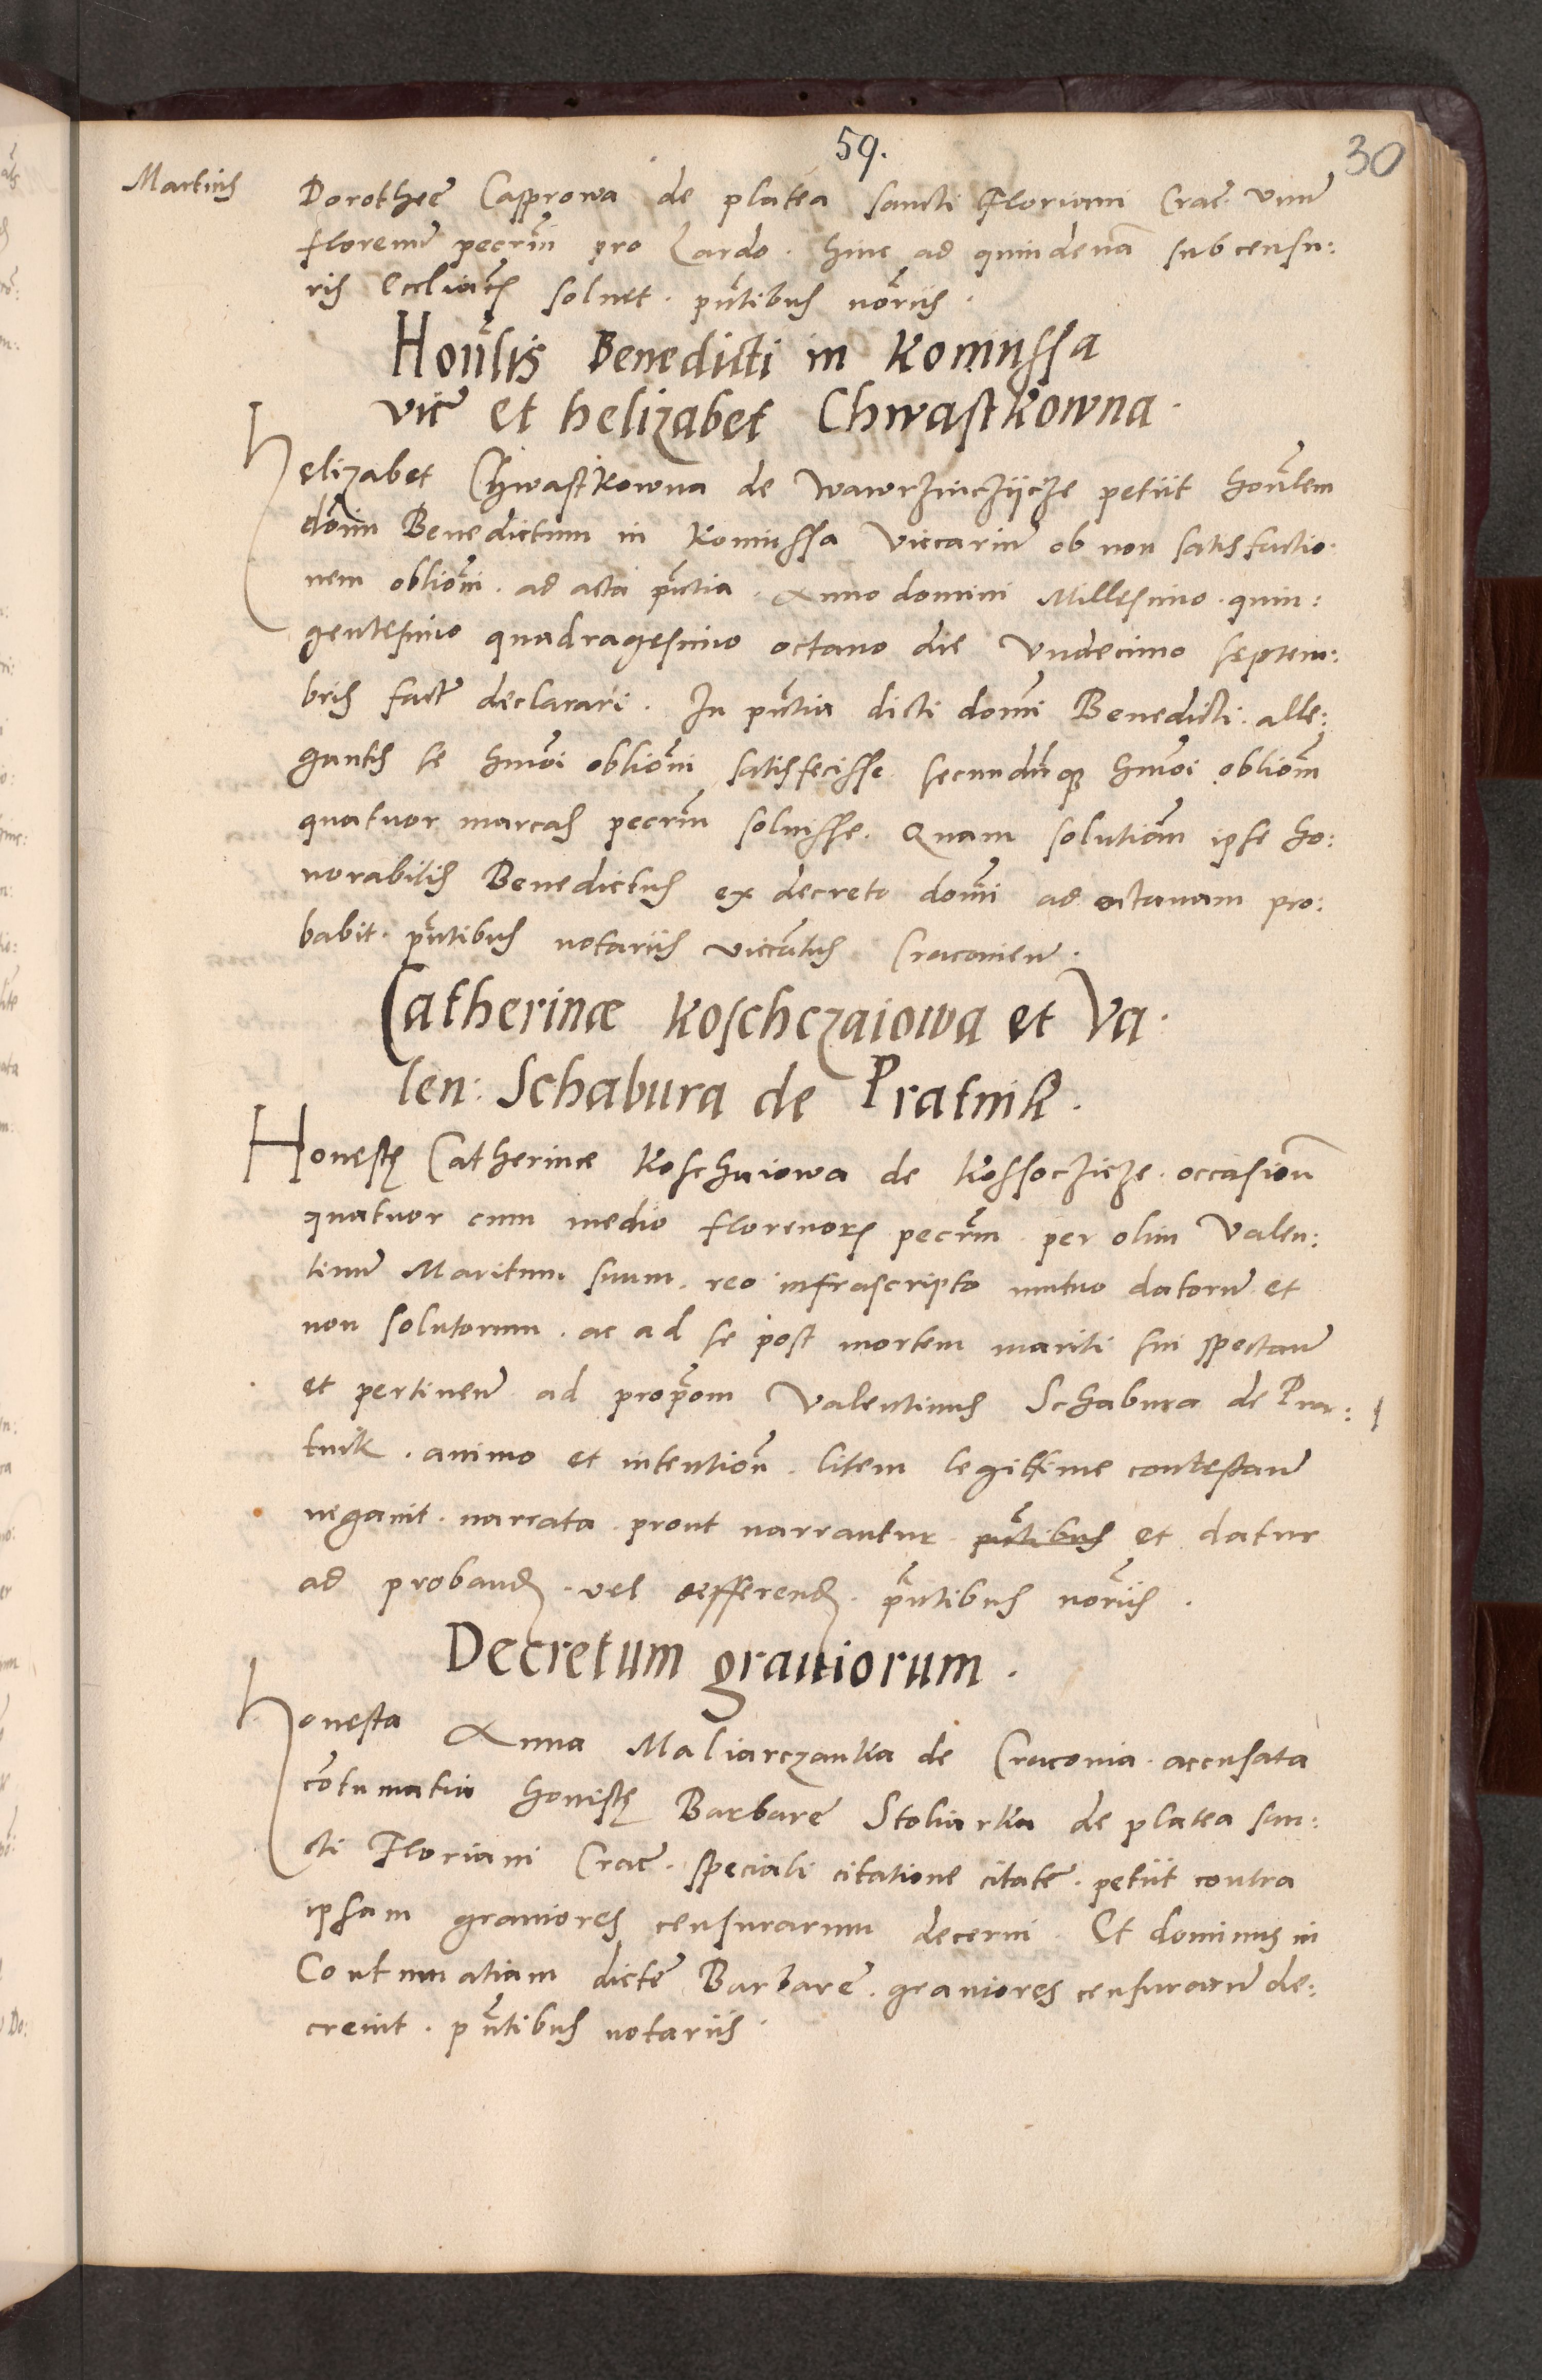 59.
30
Martius
Dorotheę Casprowa de platea sancti Floriani Crac̃. vnũ
florenũ pecc̃rñ pro Lardo. hinc ad quindenã sub censu:
ris Eccl̃iac̃ꝭ soluet. pñtibus nor̃iis.
Hoñlis Benedicti in Koniussa
vic̃ et helizabet Chwastkowna.
helizabet Chwastkowna de Wawrzinczijcze petiit hoñlem
dom̃ Benedictum in Koniussa viccariũ ob non satisfactio.
nem oblioñi. ad acta pñtia. Anno domini Millesimo. quin:
gentesimo quadragesimo octauo die Vndecimo septem:
bris factẽ declarari. In pñtia dicti domĩ Benedicti. alle:
gantis se hmõi oblioñi satisfecisse secundũqꝫ hmõi oblioñm
quatuor marcas pecc̃rñ soluisse. Quam solutiõm ipse ho:
norabilis Benedictus ex decreto domĩ ad octauam pro:
babit. pñtibus notariis viccãtus Cracouieñ.
Catherinæ Koschczaiowa et Va.
len: Schabura de Pratnik.
Honestę Catherinæ Koschaiowa de Kossoczicze. occasioñ
quatuor cum medio florenorꝭ pecc̃rñ. per olim Valen:
tinũ Maritum suum. reo infrascripto mutuo datorũ et
non solutorum. ac ad se post mortem mariti sui spectañ
et pertineñ ad prop̃om Valentinus Schabura de Pra:
tnik. animo et intentioñ. litem legittime contestañ
negauit. narrata. prout narrantur. pñtibus et datur
ad proband. vel defferend. pñtibus nor̃iis.
Decretum grauiorum.
honesta Anna Maliarczanka de Cracouia. accusata
cõtumatia honestę Barbarę Stoliarka de platea san:
cti Floriani Crac̃. speciali citatione citatę. petiit contra
ipsam grauiores censurarum decerni. Et dominus in
Contumatiam dictę Barbarę. grauiores censurarũ de:
creuit. pñtibus notariis.